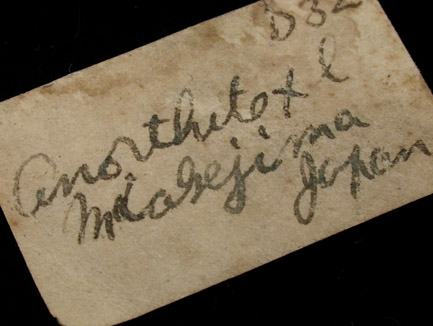 B32
Anorthite xl
Miakejima
Japan